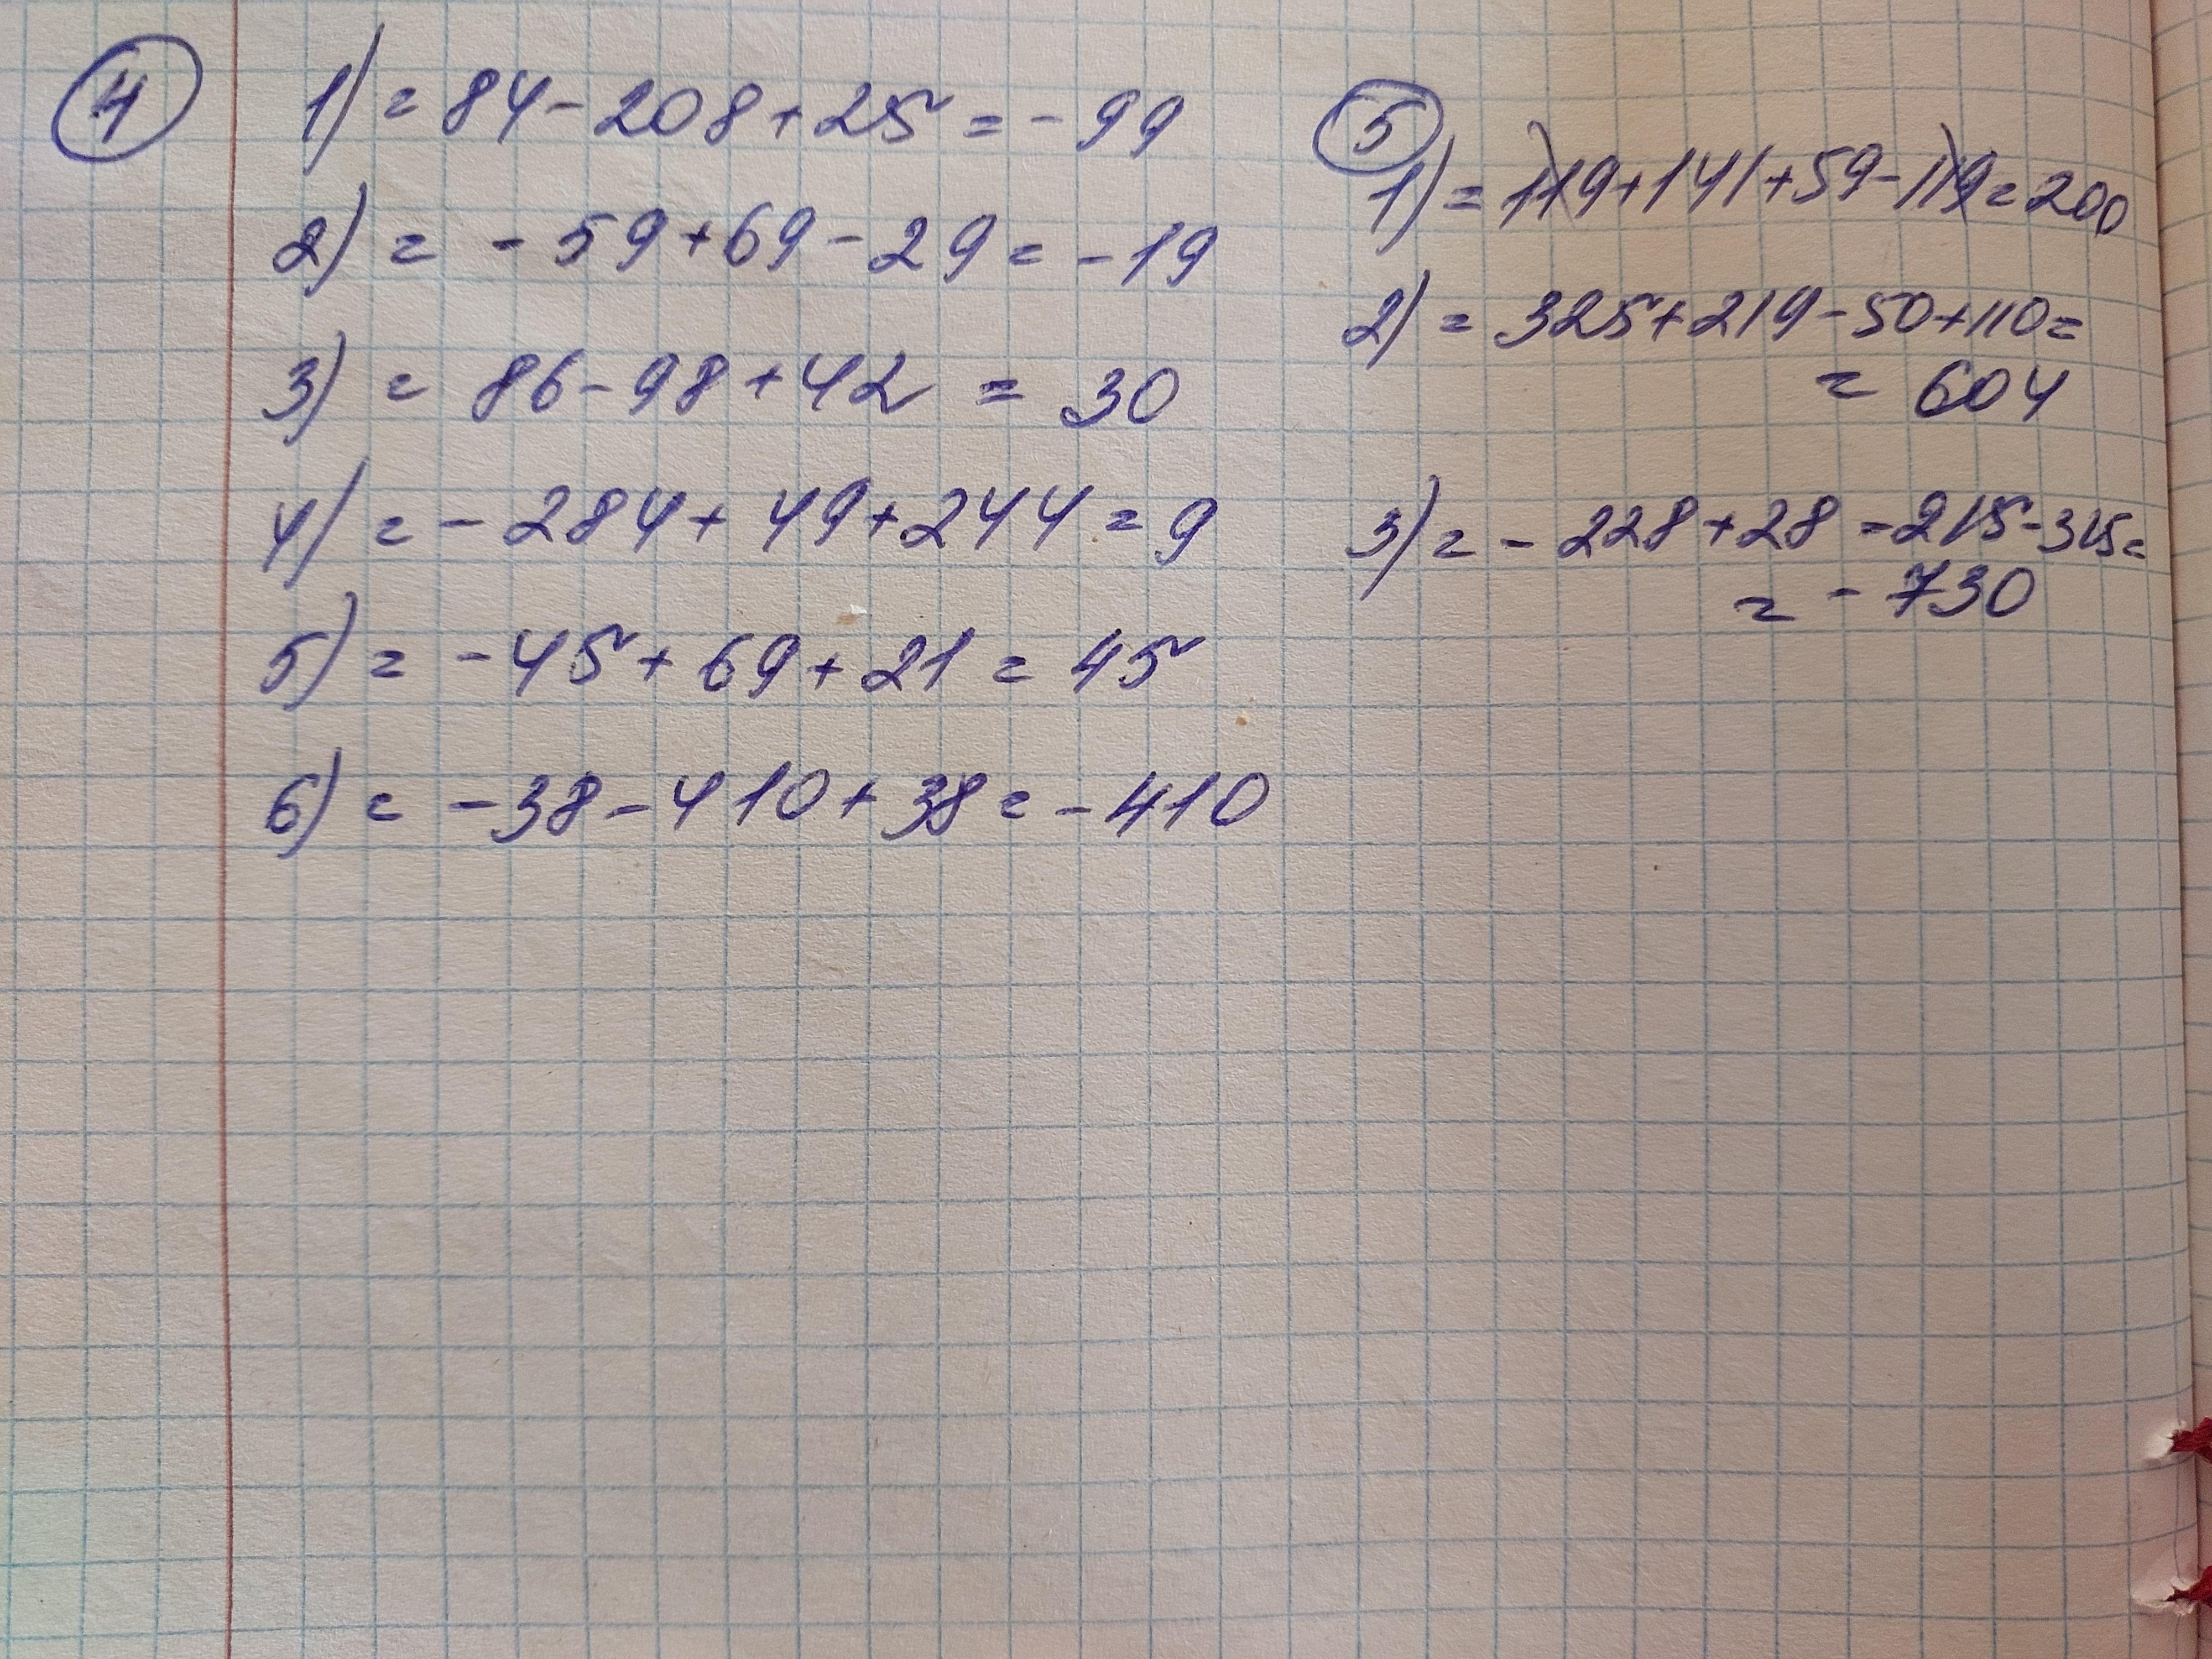 4
1) = 84 - 208 + 25 = - 99
2) = - 59 + 69 - 29 = - 19
3) = 86 - 98 + 42 = 30
4) = - 284 + 49 + 244 = 9
5) = - 45 + 69 + 21 = 45
6) = - 38 - 410 + 38 = - 410
5
1) = 119 + 141 + 59 - 119 = 200
2) = 325 + 219 - 50 + 110 =
= 604
3) = - 228 + 28 - 215 - 315 =
= - 730